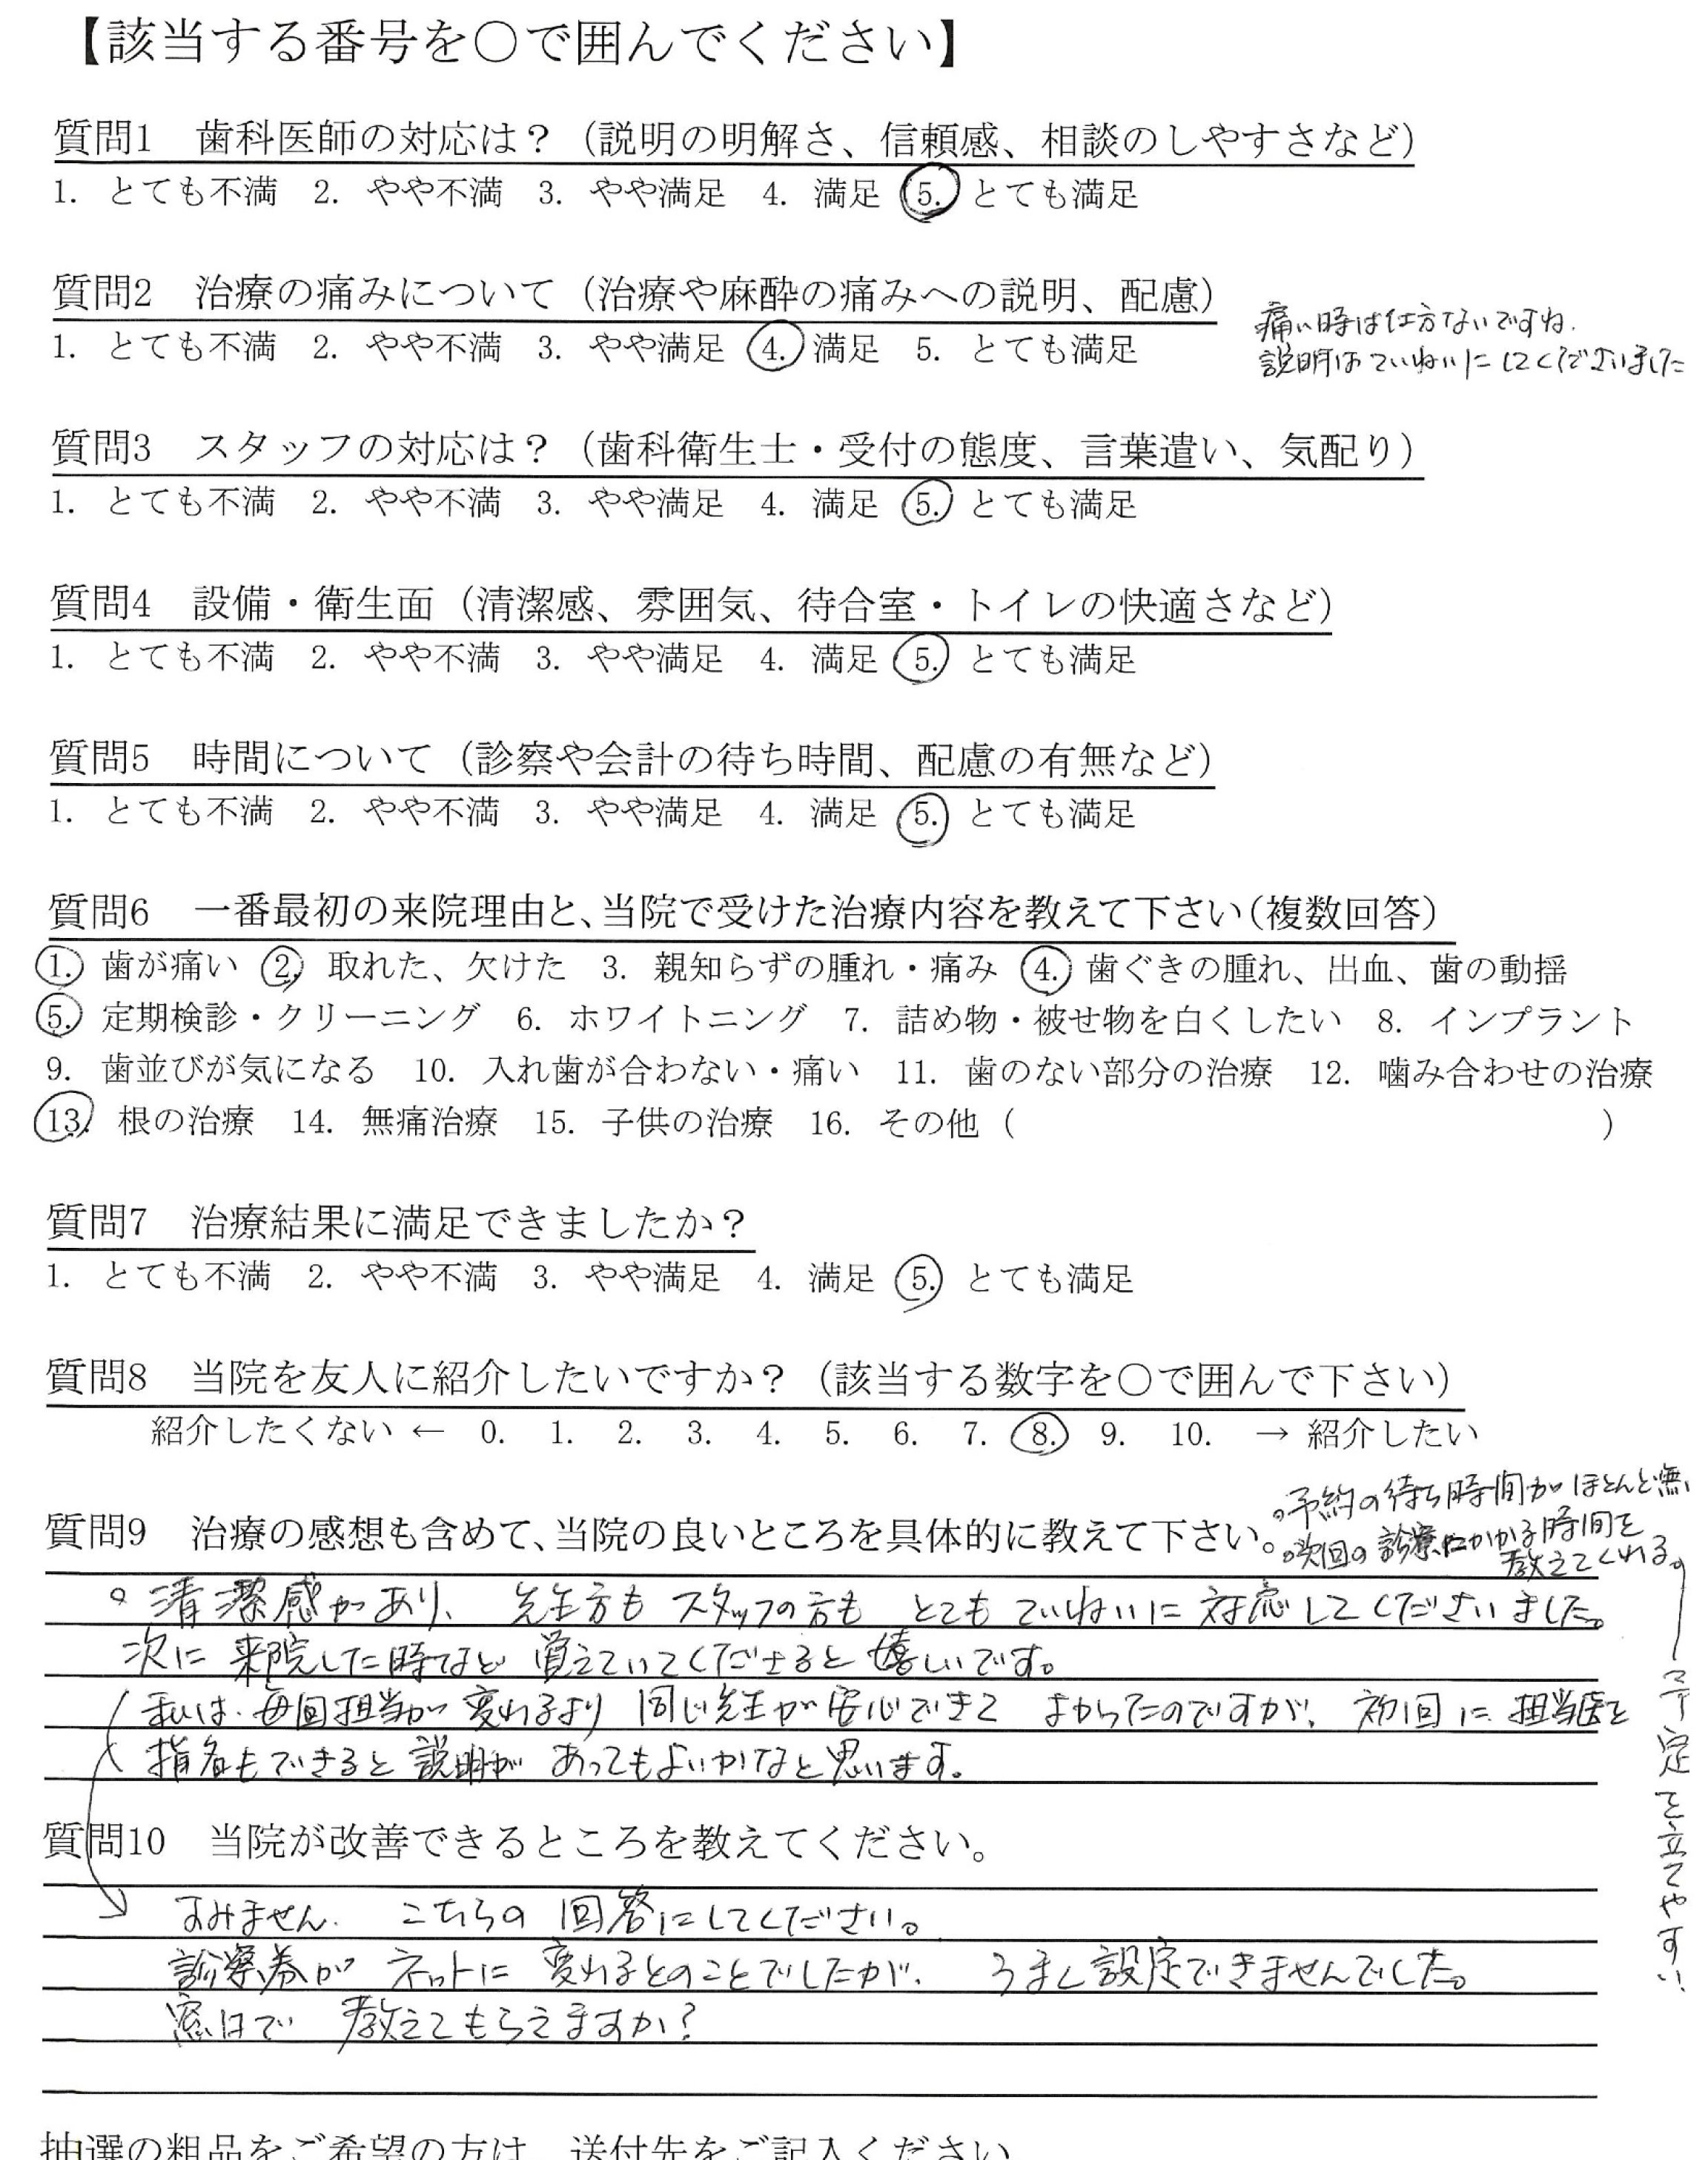 【該当する番号を○で囲んでください】
質問1　歯科医師の対応は？（説明の明解さ、信頼感、相談のしやすさなど）
1. とても不満　2. やや不満　3. やや満足　4. 満足　5. とても満足
質問2　治療の痛みについて（治療や麻酔の痛みへの説明、配慮）
1. とても不満　2. やや不満　3. やや満足　4. 満足　5. とても満足
痛い時は仕方ないですね.
説明はていねいにしてくださいました
質問3　スタッフの対応は？（歯科衛生士・受付の態度、言葉遣い、気配り）
1. とても不満　2. やや不満　3. やや満足　4. 満足　5. とても満足
質問4　設備・衛生面（清潔感、雰囲気、待合室・トイレの快適さなど）
1. とても不満　2. やや不満　3. やや満足　4. 満足　5. とても満足
質問5　時間について（診察や会計の待ち時間、配慮の有無など）
1. とても不満　2. やや不満　3. やや満足　4. 満足　5. とても満足
質問6　一番最初の来院理由と、当院で受けた治療内容を教えて下さい（複数回答）
1. 歯が痛い　2. 取れた、欠けた　3. 親知らずの腫れ・痛み　4. 歯ぐきの腫れ、出血、歯の動揺
5. 定期検診・クリーニング　6. ホワイトニング　7. 詰め物・被せ物を白くしたい　8. インプラント
9. 歯並びが気になる　10. 入れ歯が合わない・痛い　11. 歯のない部分の治療　12. 噛み合わせの治療
13. 根の治療　14. 無痛治療　15. 子供の治療　16. その他（　　　　）
質問7　治療結果に満足できましたか？
1. とても不満　2. やや不満　3. やや満足　4. 満足　5. とても満足
質問8　当院を友人に紹介したいですか？（該当する数字を○で囲んで下さい）
紹介したくない ← 0. 1. 2. 3. 4. 5. 6. 7. 8. 9. 10. → 紹介したい
質問9　治療の感想も含めて、当院の良いところを具体的に教えて下さい。
。予約の待ち時間がほとんど無い
。次回の診療にかかる時間を
教えてくれる。
予定を立てやすい.
。清潔感があり、先生方もスタッフの方も とてもていねいに対応してくださいました。
次に来院した時など 覚えていてくださると嬉しいです。
私は、毎回担当が変わるより 同じ先生が安心できて よかったのですが、初回に担当医を
指名もできると説明が あってもよいかなと思います。
質問10　当院が改善できるところを教えてください。
すみません. こちらの回答にしてください。
診察券が ネットに変わるとのことでしたが、うまく設定できませんでした。
窓口で 教えてもらえますか？
抽選の粗品をご希望の方は、送付先をご記入ください